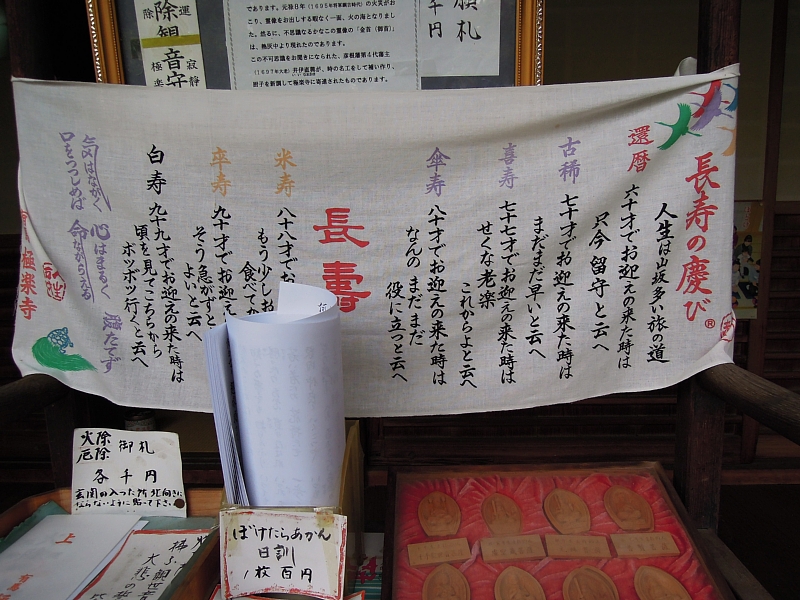 除
運
除
観
音
守
極
楽
寂
静
であります。元禄８年（1695年将軍綱吉時代）の火災がお
こり、霊像をお出しする暇なく一面、火の海となりまし
た。然るに、不思議なるかなこの霊像の「金首（御首）は
は、熱灰中より現れたのであります。
この不可思議をお聞きになられた、彦根藩第４代藩主
（1697年大老）井伊直興が、時の名工をして補い作り、
厨子を新調して極楽寺に寄進されたものであります。
願札
千円
長寿の慶び®
人生は山坂多い旅の道
還暦
六十才でお迎えの来た時は
只今留守と云へ
古稀
七十才でお迎えの来た時は
まだまだ早いと云へ
喜寿
七十七才でお迎えの来た時は
せくな老楽
これからよと云へ
傘寿
八十才でお迎えの来た時は
なんのまだまだ
役に立つと云へ
長寿
米寿
八十八才でお
もう少しお
食べてか
卒寿
九十才でお迎え
そう急がずと
よいと云へ
白寿
九十九才でお迎えの来た時は
頃を見てこちらから
ボツボツ行くと云へ
気はながく
心はまるく
腹たてず
口をつつしめば
命ながらえる
極楽寺
火除
厄除
御札
各千円
玄関の入った所北向きに
ならないように貼って下さい
上
ぼけたらあかん
日訓
1枚百円